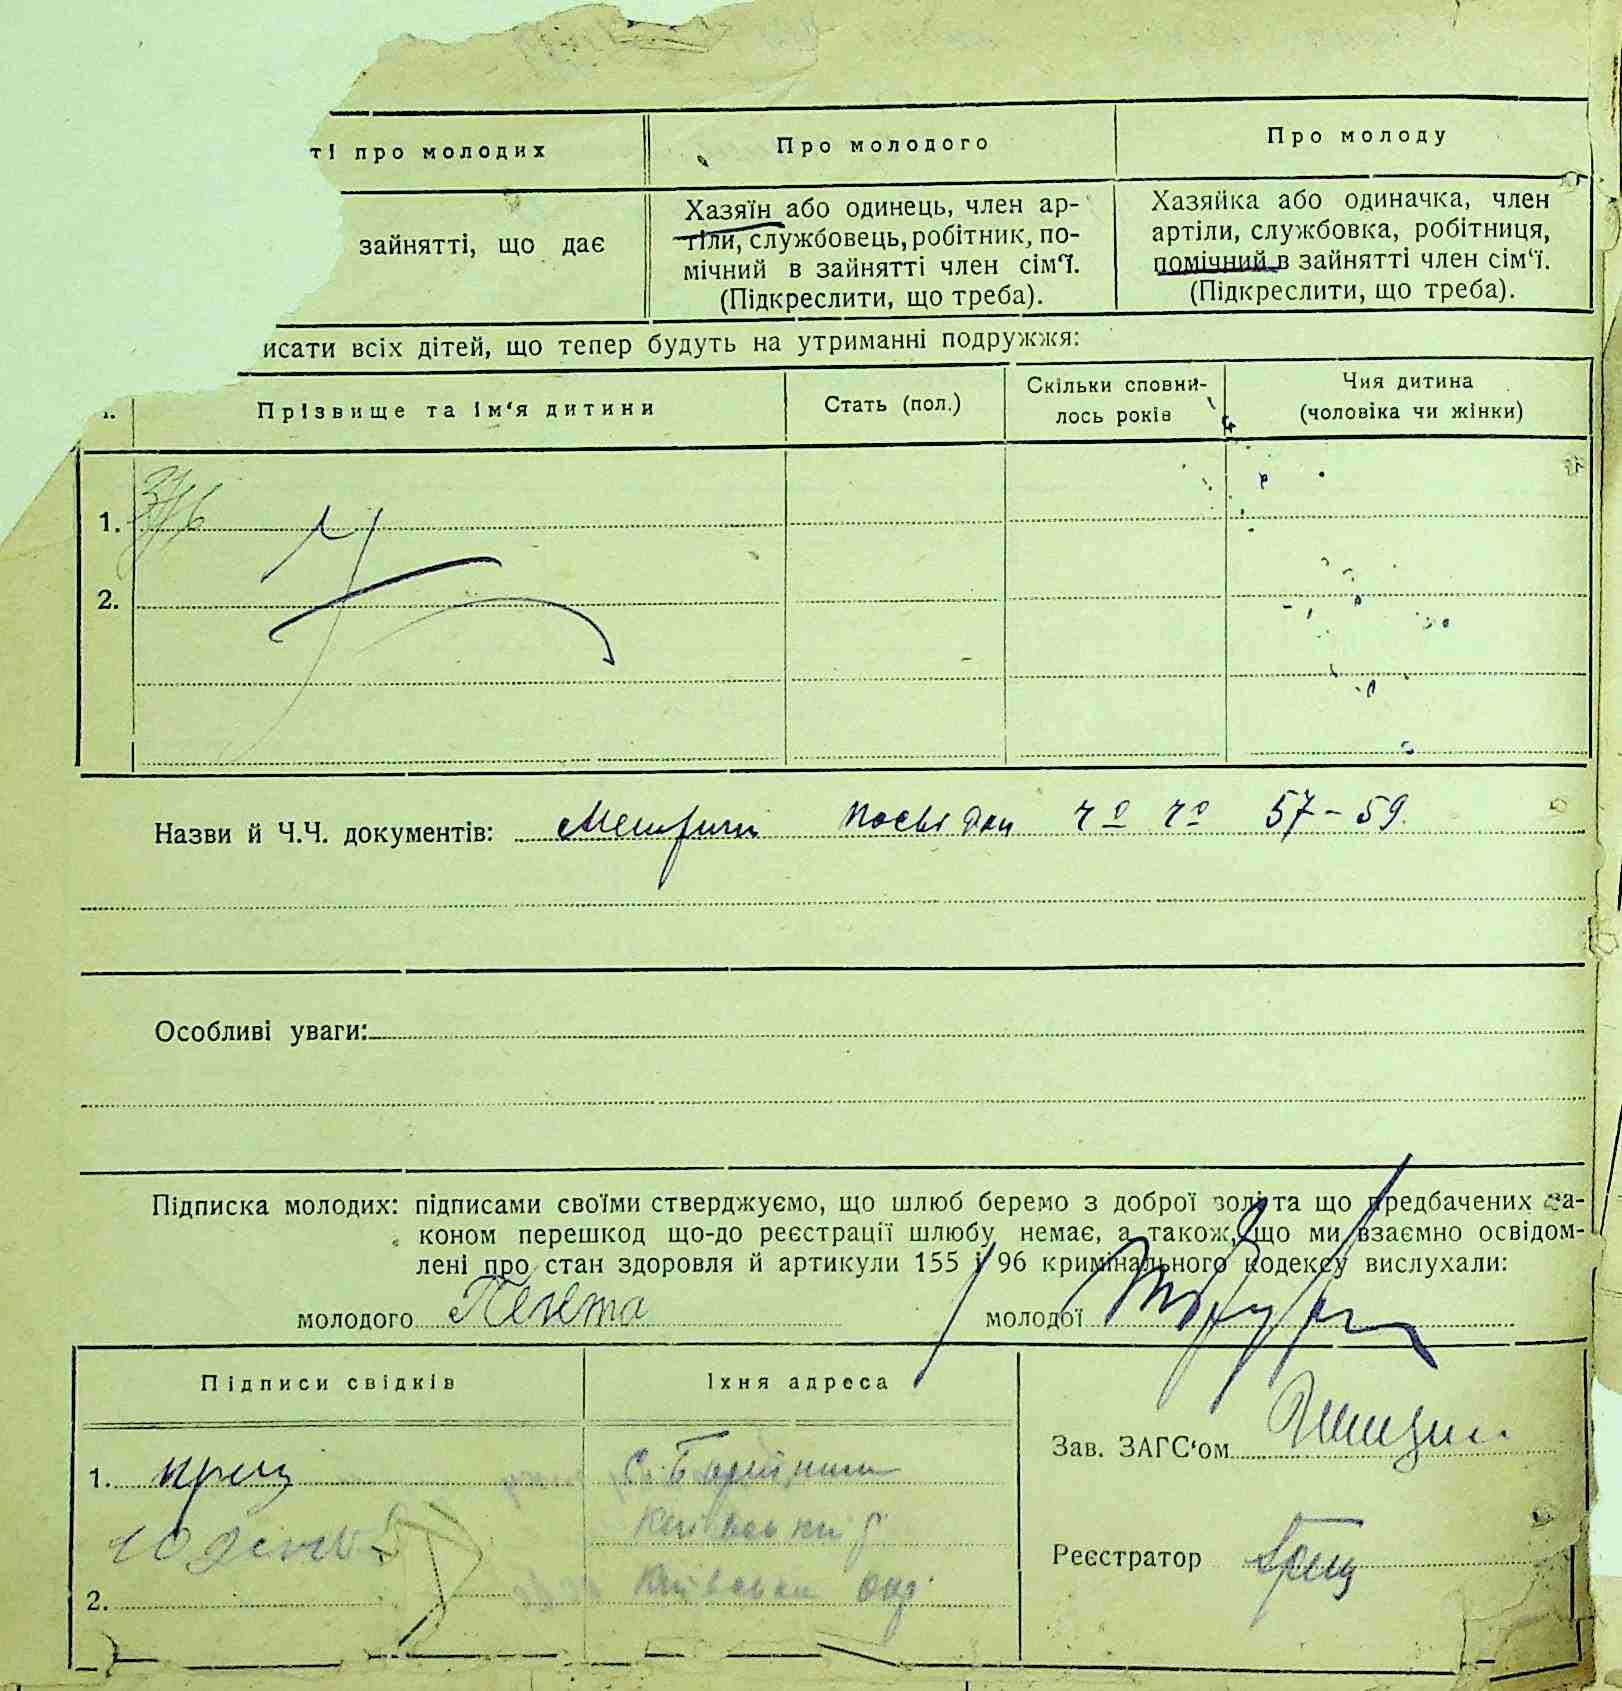 ті про молодих
Про молодого
Про молоду
зайнятті, що дає
Хазяїн або одинець, член ар-
тіли, службовець, робітник, по-
мічний в зайнятті член сім'ї.
(Підкреслити, що треба).
Хазяйка або одиначка, член
артіли, службовка, робітниця,
помічний в зайнятті член сім'ї.
(Підкреслити, що треба).
исати всіх дітей, що тепер будуть на утриманні подружжя:
Прізвище та ім'я дитини
Стать (пол.)
Скільки сповни-
лось років
Чия дитина
(чоловіка чи жінки)
1.
2.
Назви й Ч.Ч. документів: посвідки 57-59.
Особливі уваги:
Підписка молодих: підписами своїми стверджуємо, що шлюб беремо з доброї волі та що предбачених за-
коном перешкод що-до реєстрації шлюбу немає, а також, що ми взаємно освідом-
лені про стан здоровля й артикули 155 і 96 кримінального кодексу вислухали:
молодого
молодої
Підписи свідків
Їхня адреса
Зав. ЗАГС'ом
1.
Реєстратор
2.